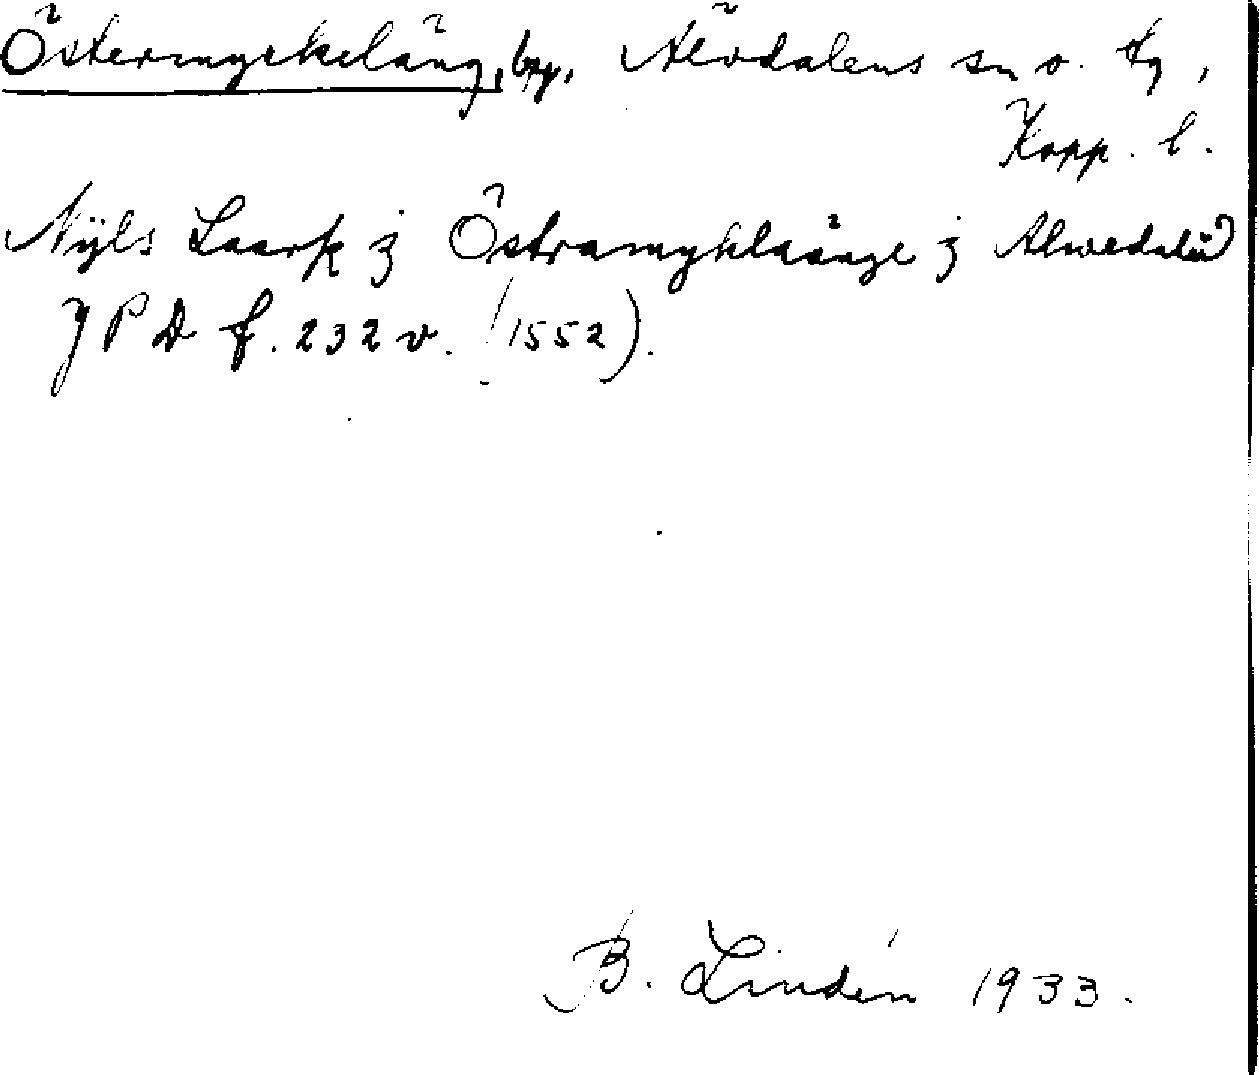 Östermyckeläng, by, Älvdalens sn o. tg,
Kopp. l.
Nijls Laark j Östramyklaänge j Alwedalñ
J P D f. 232 v. (1552).
B. Lindén 1933.